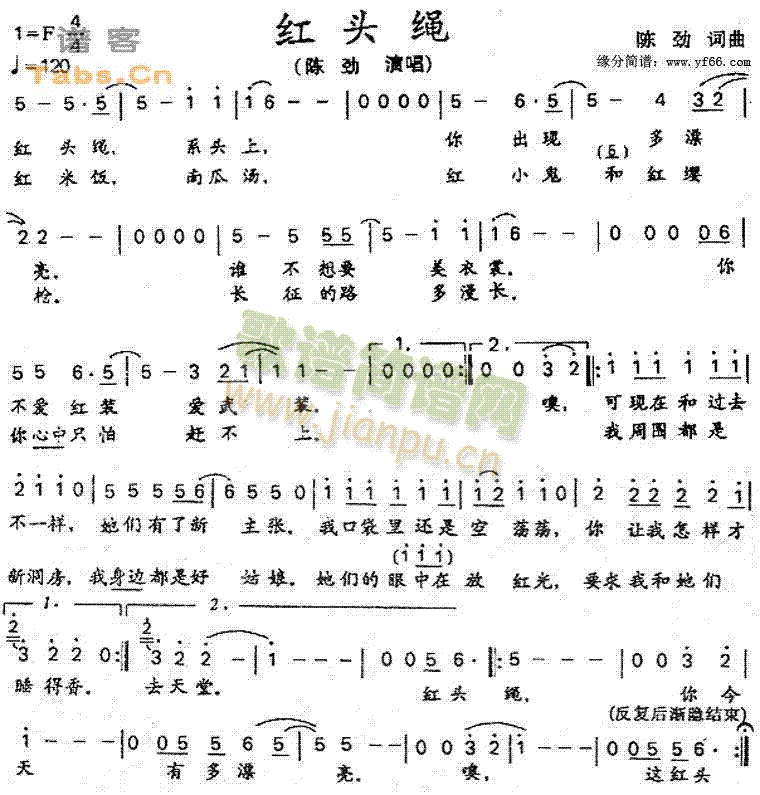 红头绳
1=F 4/4
♩=120
谱客
Tabs.Cn
(陈 劲 演唱)
陈 劲 词曲
缘分简谱：www.yf66.com
5 - 5·5 | 5 - i i | i 6 - - | 0 0 0 0 | 5 - 6·5 | 5 - 4 3 2 |
红 头 绳， 系 头 上， 你 出 现 多 漂
(5)
红 米 饭， 南 瓜 汤， 红 小 鬼 和 红 缨
2 2 - - | 0 0 0 0 | 5 - 5 5 5 | 5 - i i | i 6 - - | 0 0 0 0 6 |
亮。 谁 不 想 要 美 衣 裳。 你
枪。 长 征 的 路 多 漫 长，
1. 2.
5 5 6·5 | 5 - 3 2 1 | 1 1 - - | 0 0 0 0 :| 0 0 3 2 |: i i i i i i |
不 爱 红 装 爱 武 装。 噢， 可 现 在 和 过 去
你 心 中 只 怕 赶 不 上。 我 周 围 都 是
歌谱简谱网
www.jianpu.cn
2 i i 0 | 5 5 5 5 5 6 | 6 5 5 0 | i i i i i i i | i 2 i i 0 | 2 2 2 2 2 i |
不 一 样， 她 们 有 了 新 主 张。 我 口 袋 里 还 是 空 荡 荡， 你 让 我 怎 样 才
(i i i)
新 洞 房， 我 身 边 都 是 好 姑 娘。 她 们 的 眼 中 在 放 红 光， 要 求 我 和 她 们
1. 2.
3 2 2 0 :| 3 2 2 - | i - - - | 0 0 5 6· :|: 5 - - - | 0 0 3 2 |
睡 得 香。 去 天 堂。 红 头 绳， 你 今
(反复后渐隐结束)
i - - - | 0 0 5 5 6 5 | 5 - - - | 0 0 3 2 | i - - - | 0 0 5 5 6· :|
天 有 多 漂 亮。 噢， 这 红 头